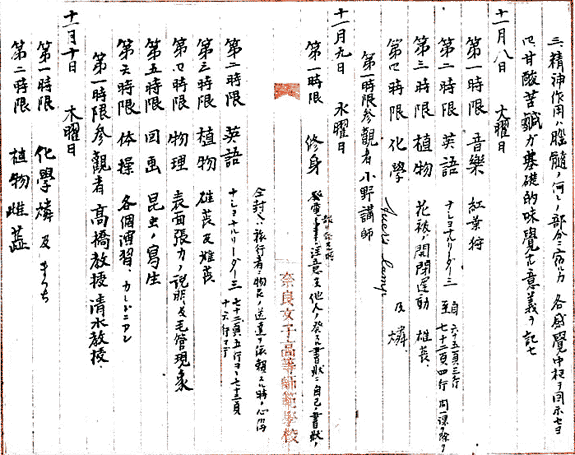 三、精神作用ハ脳髄ノ何レノ部分ニ宿ルカ 各感覚中枢ヲ図示セヨ
四、甘酸苦鹹ガ基礎的味覚タル意義ヲ記セ
十一月八日 火曜日
第一時限 音樂 紅葉狩
第二時限 英語 ナショナルリーダー三 自六十五頁三行 至七十二頁四行
第三時限 植物 花被ノ開閉運動 雄蕊
第四時限 化學 及燐
第一時限参觀者 小野講師
十一月九日 水曜日
第一時限 修身
第二時限 英語 ナショナルリーダー三 七十二頁五行ヨリ七十五頁十六行マデ
第三時限 植物 雄蕊及雌蕊
第四時限 物理 表面張力ノ説明及毛管現象
第五時限 図画 昆虫ノ寫生
第六時限 体操 各個演習
第一時限参觀者 高橋教授 清水教授
十一月十日 木曜日
第一時限 化學 燐及
第二時限 植物 雌蕊
奈良女子高等師範學校